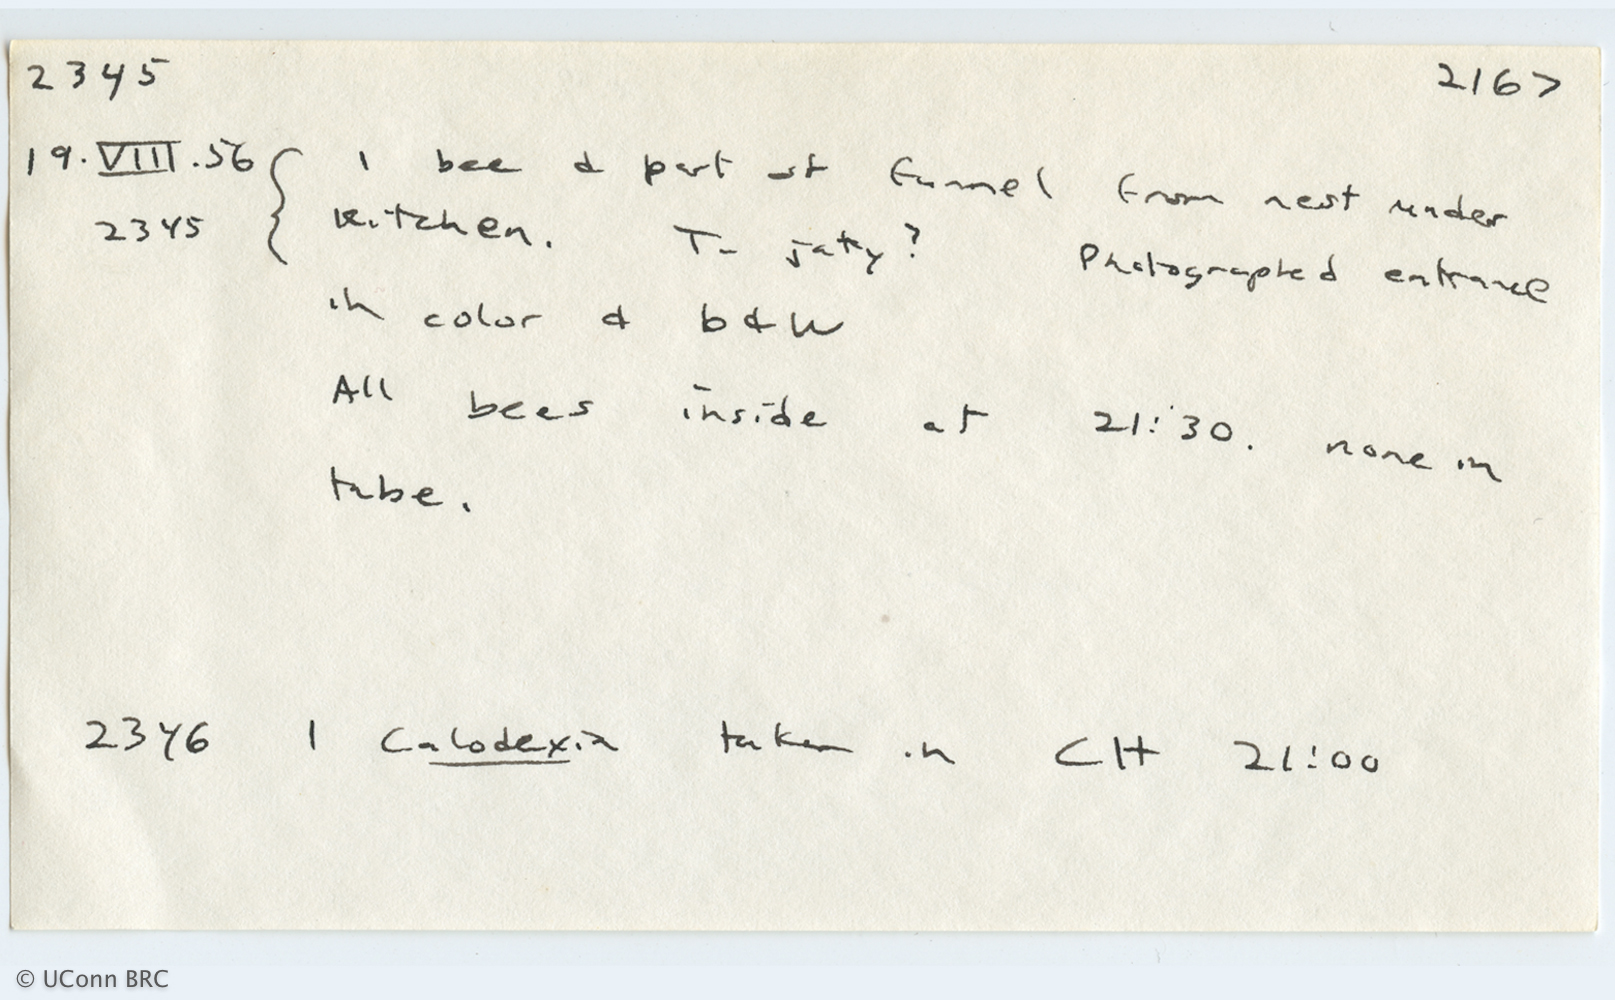 2345 2167
19.VIII.56 { 1 bee & part of funnel from nest under
2345 kitchen. T- jaty? Photographed entrance
in color & b & W
All bees inside at 21:30. none in
tube.
2346 1 Calodexia taken in CH 21:00
© UConn BRC